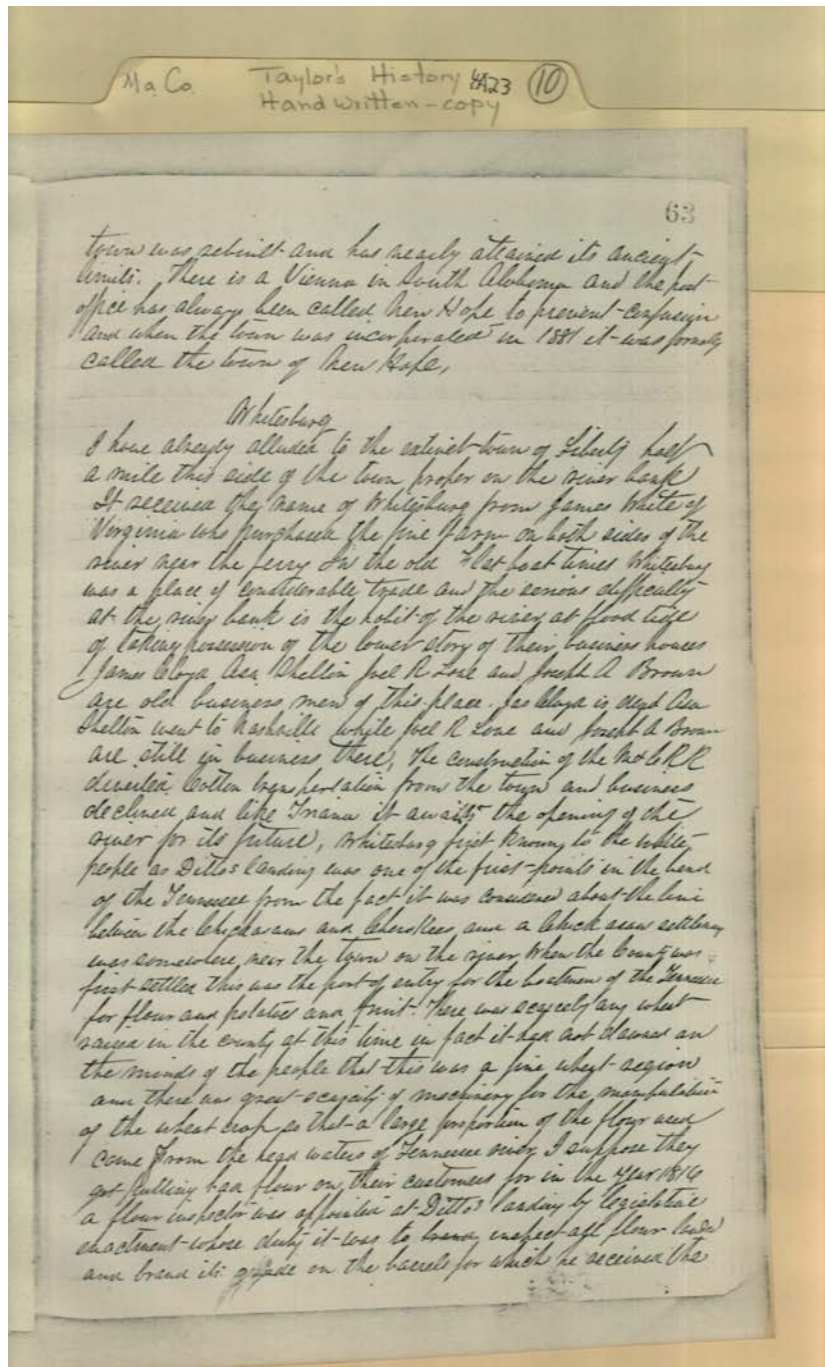 Ma. Co. Taylor's History 4A23 (10)
Handwritten-copy
63
town was rebuilt and has nearly attained its ancient
limits. There is a Vienna in South Alabama and the post
office has always been called New Hope to prevent confusion
and when the town was incorporated in 1881 it was formally
called the town of New Hope,
Whitesburg
I have already alluded to the extinct town of Liberty half
a mile this side of the town proper on the river bank
It received the name of Whitesburg from James White of
Virginia who purchased the fine farm on both sides of the
river near the ferry In the old Flat boat times Whitesburg
was a place of considerable trade and the serious difficulty
at the river bank is the habit of the river at flood tide
of taking possession of the lower story of their business houses
James Cloyd Asa Shelton Joel R Love and Joseph A Brown
are old business men of this place. Jas Cloyd is dead Asa
Shelton went to Nashville while Joel R Love and Joseph A Brown
are still in business there, The construction of the M & C RR
diverted Cotton transportation from the town and business
declined and like Triana it awaits the opening of the
river for its future, Whitesburg first known to the white
people as Dittos landing was one of the first points in the bend
of the Tennessee from the fact it was considered about the line
between the Chickasaws and Cherokees and a Chickasaw settlement
was somewhere near the town on the river When the County was
first settled this was the port of entry for the boatmen of the Tennessee
for flour and potatoes and fruit. There was scarcely any wheat
raised in the county at this time in fact it had not dawned on
the minds of the people that this was a fine wheat region
and there was great scarcity of machinery for the manipulation
of the wheat crop so that a large proportion of the flour used
came from the head waters of Tennessee river I suppose they
got putting bad flour on their customers for in the year 1816
a flour inspector was appointed at Dittos landing by legislative
enactment whose duty it was to inspect all flour landed
and brand its grade on the barrels for which he received the